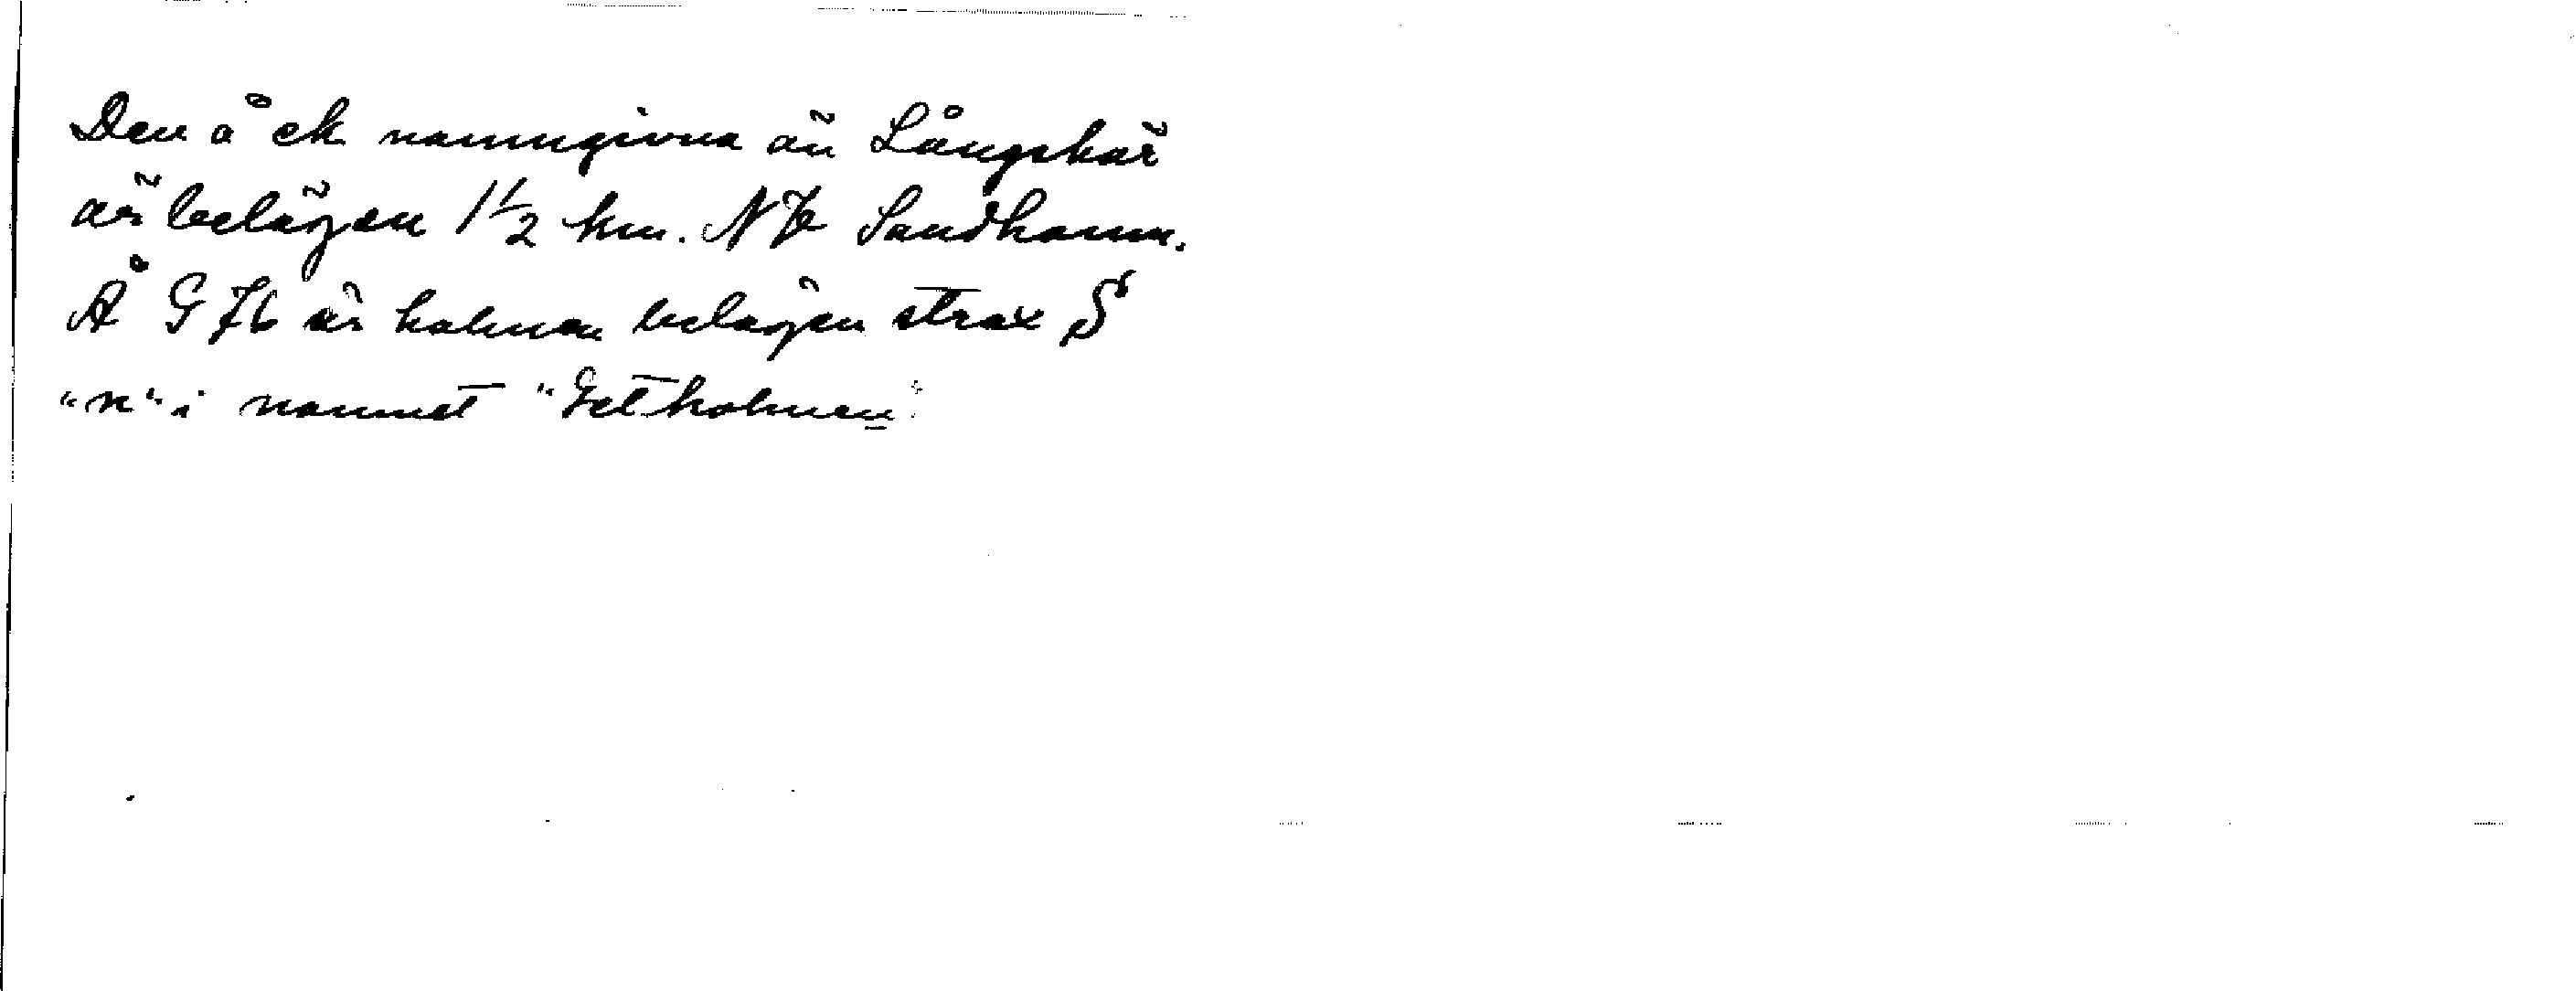 Den å ek namngivna ön Långskär
är belägen 1 1/2 km. NV Sandhamn.
Å G 76 är holmen belägen strax S
"n" i namnet "Getholmen"